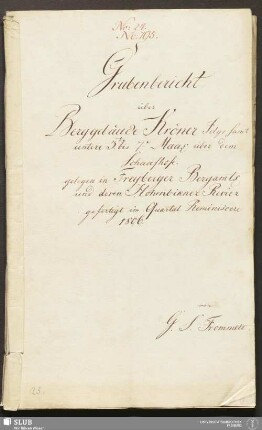 Grubenbericht
über
Berggebäude Kröner Folge samt
untere 3te bis 7e Maas über dem
gelegen in Freyberger Bergamts
und deren Hohenbirkner Revier
gefertigt im Quartal Reminiscere
1806.
von
G. S. Frommelt
33
SLUB
Wir führen Wissen.